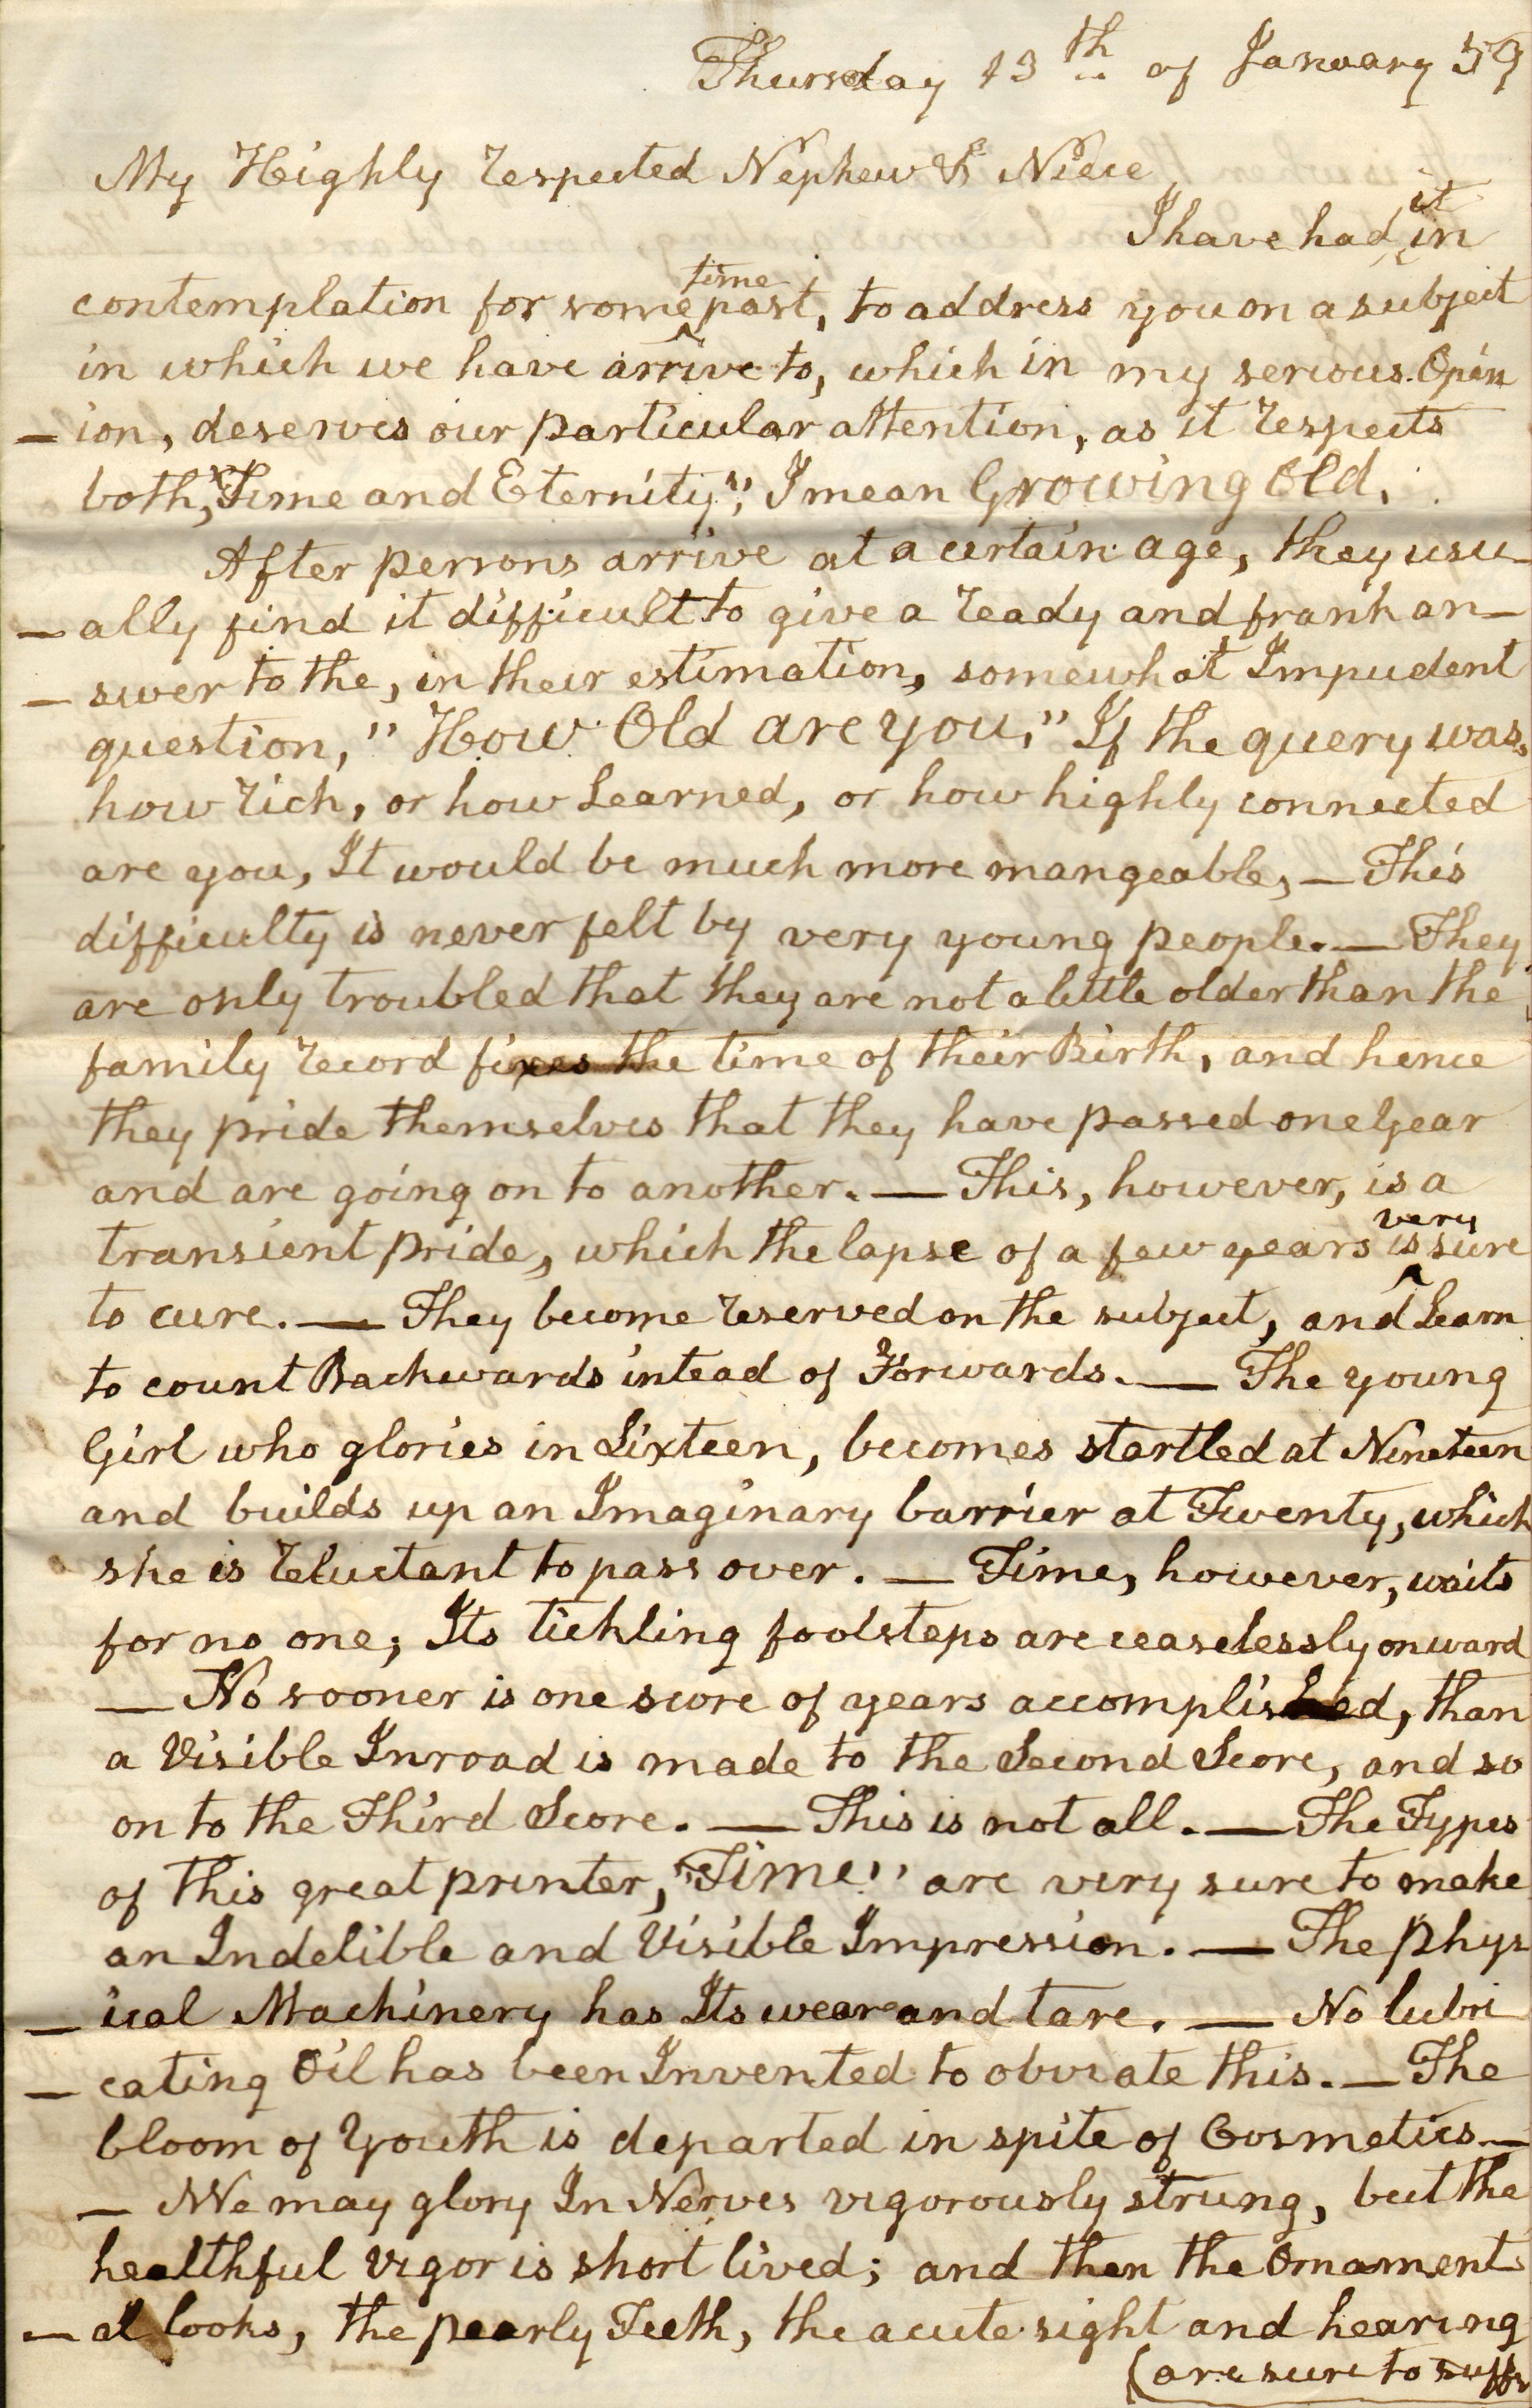 Thursday 13th of January 59
My Heighly respected Nephew & Niece
I have had it in
contemplation for some time past, to address you on a subject
in which we have arrive to, which in my serious Opin
- ion, deserves our particular attention, as it respects
both, "Time and Eternity", I mean Growing Old.
After persons arrive at a certain age, they usu-
- ally find it difficult to give a ready and frank an-
- swer to the, in their estimation, somewhat Impudent
question, "How Old are you," If the query was,
how rich, or how Learned, or how highly connected
are you, It would be much more mangeable, — This
difficulty is never felt by very young people. — They
are only troubled that they are not a little older than the
family record fixes the time of their Birth, and hence
they pride themselves that they have passed one Year
and are going on to another. — This, however, is a
transient pride, which the lapse of a few years is very sure
to cure. — They become reserved on the subject, and Learn
to count Backwards intead of Forwards. — The young
Girl who glories in Sixteen, becomes startled at Nineteen
and builds up an Imaginary barrier at Twenty, which
she is reluctant to pass over. — Time, however, waits
for no one; Its tickling footsteps are ceaselessly onward
— No sooner is one score of years accomplished, than
a Visible Inroad is made to the Second Score, and so
on to the Third Score. — This is not all. — The Types
of this great printer, "Time" are very sure to make
an Indelible and Visible Impression. — The phys
- ical Machinery has Its weare and tare. — No lubri
- cating Oil has been Invented to obviate this. — The
bloom of Youth is departed in spite of Cosmetics —
— We may glory In Nerves vigorously strung, but the
healthful vigor is short lived; and then the Ornament
- al looks, the pearly Teeth, the acute sight and hearing
(are sure to suffr